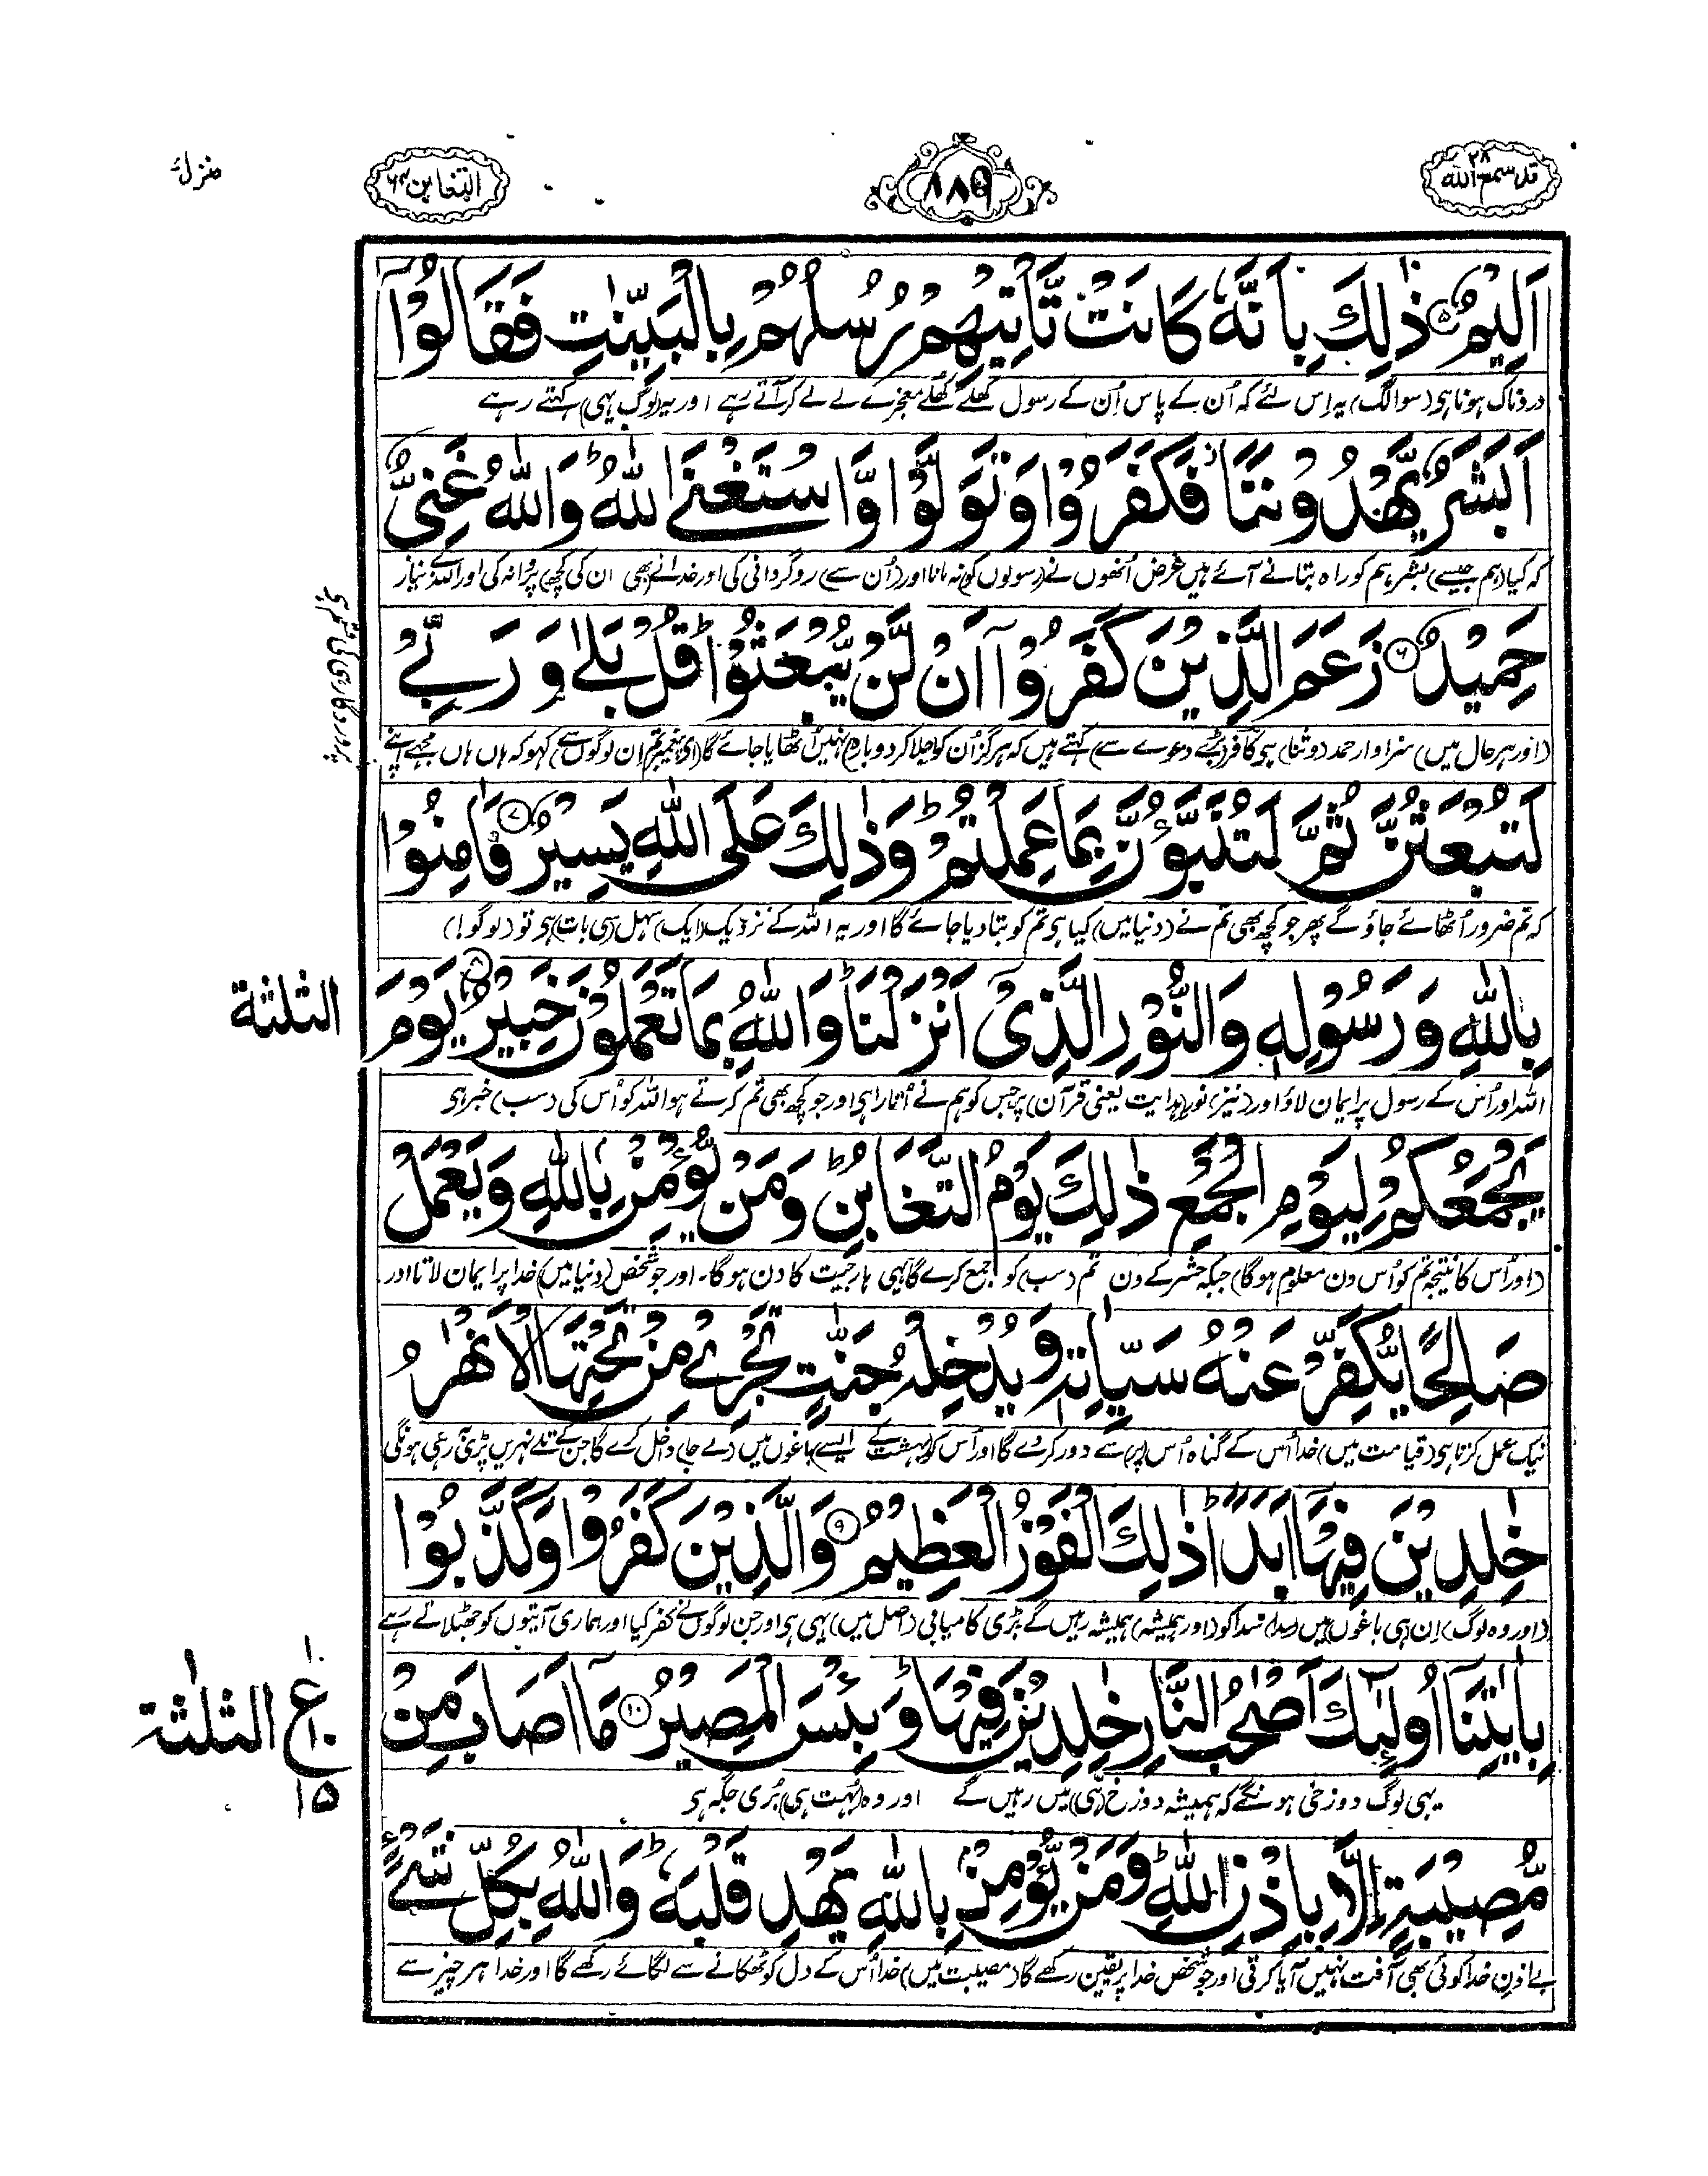 قد سمع الله ٢٨
٨٨٩
التغابن ٦٤
منزل ٧
اَلِیْمٌ ۵ ذٰلِكَ بِاَنَّهٗ كَانَتْ تَّاْتِیْهِمْ رُسُلُهُمْ بِالْبَیِّنٰتِ فَقَالُوْۤا
دردناک ہونا ہی (سو الگ) یہ اِس لئے کہ اُن کے پاس اُن کے رسول کھلے کھلے معجزے لے لے کر آتے رہے اور یہ (لوگ یہی) کہتے رہے
اَبَشَرٌ یَّهْدُوْنَنَا فَكَفَرُوْا وَ تَوَلَّوْا وَّ اسْتَغْنَی اللّٰهُ ؕ وَ اللّٰهُ غَنِیٌّ
کہ کیا (ہم جیسے) بشر ہم کو راہ بتانے آئے ہیں غرض اُنھوں نے (رسولوں کو) نہ مانا اور (اُن سے) روگردانی کی اور خدا نے (بھی) ان کی کچھ پروا نہ کی اور اللہ بے نیاز
حَمِیْدٌ ۶ زَعَمَ الَّذِیْنَ كَفَرُوْۤا اَنْ لَّنْ یُّبْعَثُوْا ؕ قُلْ بَلٰی وَ رَبِّیْ
(اور ہر حال میں) سزاوار حمد (و ثنا) ہی کافر (بڑے دعوے سے) کہتے ہیں کہ ہرگز اُن کو (جلا کر دوبارہ) نہیں اُٹھایا جائے گا (ای پیغمبر تم اِن لوگوں سے) کہو کہ ہاں ہاں مجھے اپنے
پروردگار ہی کی قسم ہی
لَتُبْعَثُنَّ ثُمَّ لَتُنَبَّؤُنَّ بِمَا عَمِلْتُمْ ؕ وَ ذٰلِكَ عَلَی اللّٰهِ یَسِیْرٌ ۷ فَاٰمِنُوْا
کہ تم ضرور اُٹھائے جاؤ گے پھر جو کچھ بھی تم نے (دنیا میں) کیا ہی تم کو بتا دیا جائے گا اور یہ اللہ کے نزدیک (ایک) سہل (سی بات) ہی تو (لوگو!)
بِاللّٰهِ وَ رَسُوْلِهٖ وَ النُّوْرِ الَّذِیْۤ اَنْزَلْنَا ؕ وَ اللّٰهُ بِمَا تَعْمَلُوْنَ خَبِیْرٌ ۸ یَوْمَ
الثلثة
اللہ اور اُس کے رسول پر ایمان لاؤ اور (نیز) نور (ہدایت یعنی قرآن) پر جس کو ہم نے اُتارا ہی اور جو کچھ بھی تم کرتے ہو اللہ کو اُس کی (سب) خبر ہی
یَجْمَعُكُمْ لِیَوْمِ الْجَمْعِ ذٰلِكَ یَوْمُ التَّغَابُنِ ؕ وَ مَنْ یُّؤْمِنْۢ بِاللّٰهِ وَ یَعْمَلْ
(اور اُس کا نتیجہ تم کو اُس دن معلوم ہو گا) جبکہ حشر کے دن تم (سب) کو جمع کرے گا یہی ہار جیت کا دن ہو گا۔ اور جو شخص (دنیا میں) خدا پر ایمان لاتا اور
صَالِحًا یُّكَفِّرْ عَنْهُ سَیِّاٰتِهٖ وَ یُدْخِلْهُ جَنّٰتٍ تَجْرِیْ مِنْ تَحْتِهَا الْاَنْهٰرُ
نیک عمل کرتا ہی (قیامت میں) خدا اُس کے گناہ اُس (پر) سے دور کر دے گا اور اُس کو (بہشت کے) ایسے باغوں میں (لے جا) داخل کرے گا جن کے تلے نہریں پڑی بہ رہی ہونگی
خٰلِدِیْنَ فِیْهَاۤ اَبَدًا ؕ ذٰلِكَ الْفَوْزُ الْعَظِیْمُ ۹ وَ الَّذِیْنَ كَفَرُوْا وَ كَذَّبُوْا
(اور وہ لوگ) اِن (ہی باغوں) میں (سدا) سدا کو (اور ہمیشہ) ہمیشہ رہیں گے بڑی کامیابی (اصل میں) یہی ہی اور جن لوگوں نے کفر کیا اور ہماری آیتوں کو جھٹلاتے رہے
بِاٰیٰتِنَاۤ اُولٰٓىِٕكَ اَصْحٰبُ النَّارِ خٰلِدِیْنَ فِیْهَا ؕ وَ بِئْسَ الْمَصِیْرُ ۱۰ مَاۤ اَصَابَ مِنْ
ع ١٠ ١٥ الثلثة
یہی لوگ دوزخی ہونگے کہ ہمیشہ دوزخ (ہی) میں رہیں گے اور وہ (بہت ہی) بُری جگہ ہی
مُّصِیْبَةٍ اِلَّا بِاِذْنِ اللّٰهِ ؕ وَ مَنْ یُّؤْمِنْۢ بِاللّٰهِ یَهْدِ قَلْبَهٗ ؕ وَ اللّٰهُ بِكُلِّ شَیْءٍ
بے اذنِ خدا کوئی بھی آفت نہیں آیا کرتی اور جو شخص خدا پر یقین رکھے گا (مصیبت میں) خدا اُس کے دل کو ٹھکانے سے لگائے رکھے گا اور خدا ہر چیز سے